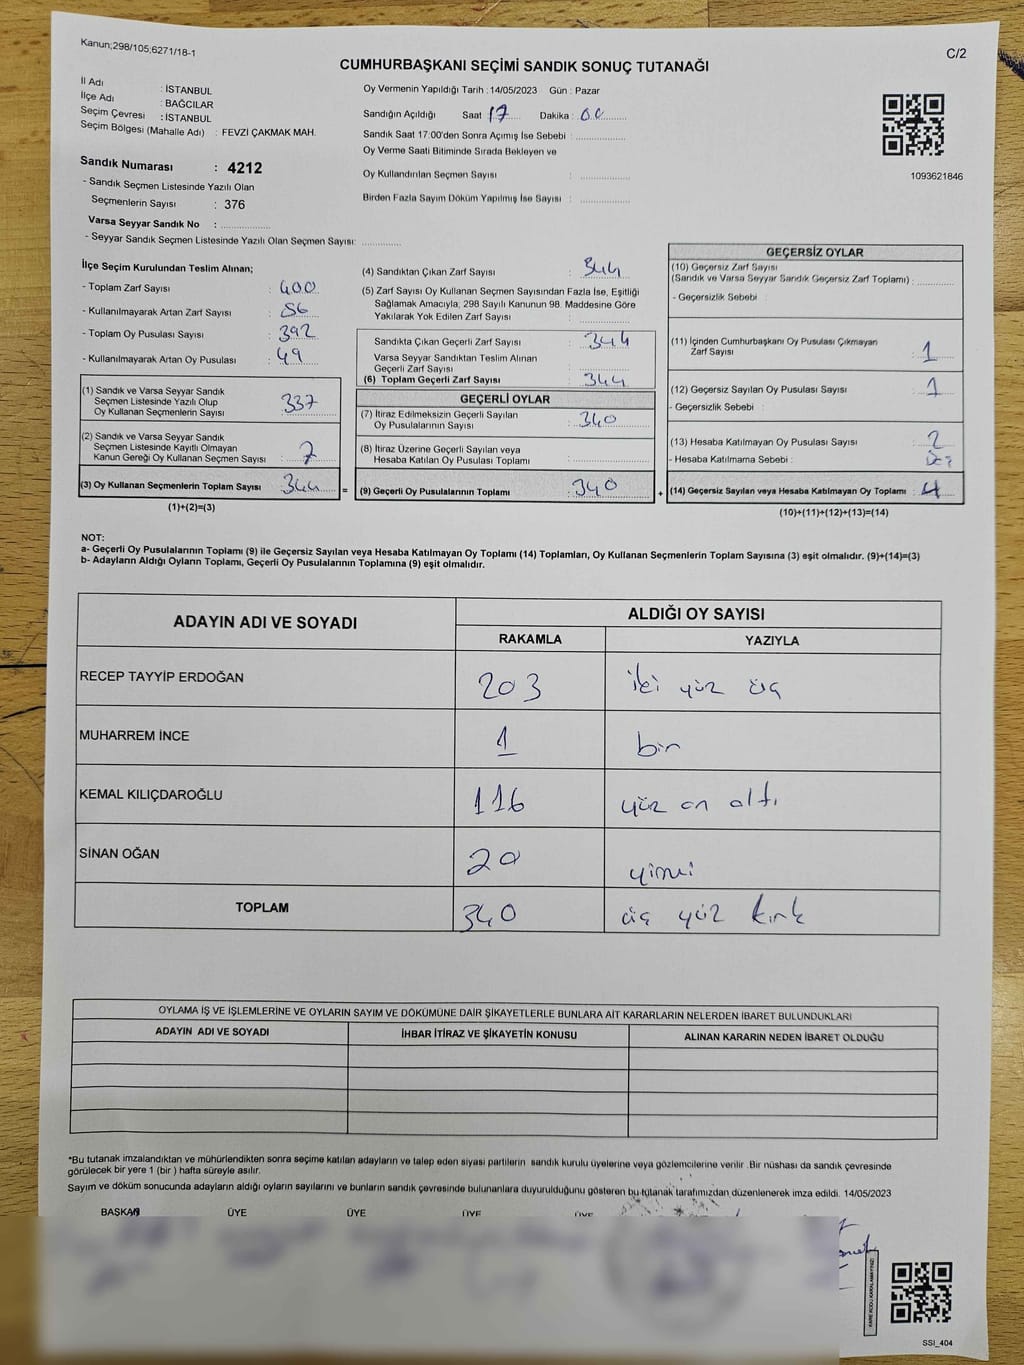 Kanun;298/105;6271/18-1
C/2
CUMHURBAŞKANI SEÇİMİ SANDIK SONUÇ TUTANAĞI
İl Adı : İSTANBUL
İlçe Adı : BAĞCILAR
Seçim Çevresi : İSTANBUL
Seçim Bölgesi (Mahalle Adı) : FEVZİ ÇAKMAK MAH.
Oy Vermenin Yapıldığı Tarih : 14/05/2023 Gün : Pazar
Sandığın Açıldığı Saat 17 Dakika : 00
Sandık Saat 17:00'den Sonra Açımış İse Sebebi :
Oy Verme Saati Bitiminde Sırada Bekleyen ve
Oy Kullandırılan Seçmen Sayısı :
Birden Fazla Sayım Döküm Yapılmış İse Sayısı :
1093621846
Sandık Numarası : 4212
- Sandık Seçmen Listesinde Yazılı Olan
Seçmenlerin Sayısı : 376
Varsa Seyyar Sandık No :
- Seyyar Sandık Seçmen Listesinde Yazılı Olan Seçmen Sayısı:
İlçe Seçim Kurulundan Teslim Alınan;
- Toplam Zarf Sayısı : 400
- Kullanılmayarak Artan Zarf Sayısı : 56
- Toplam Oy Pusulası Sayısı : 392
- Kullanılmayarak Artan Oy Pusulası : 49
(1) Sandık ve Varsa Seyyar Sandık
Seçmen Listesinde Yazılı Olup
Oy Kullanan Seçmenlerin Sayısı : 337
(2) Sandık ve Varsa Seyyar Sandık
Seçmen Listesinde Kayıtlı Olmayan
Kanun Gereği Oy Kullanan Seçmen Sayısı : 7
(3) Oy Kullanan Seçmenlerin Toplam Sayısı : 344 =
(1)+(2)=(3)
(4) Sandıktan Çıkan Zarf Sayısı : 344
(5) Zarf Sayısı Oy Kullanan Seçmen Sayısından Fazla İse, Eşitliği
Sağlamak Amacıyla; 298 Sayılı Kanunun 98. Maddesine Göre
Yakılarak Yok Edilen Zarf Sayısı :
Sandıkta Çıkan Geçerli Zarf Sayısı : 344
Varsa Seyyar Sandıktan Teslim Alınan
Geçerli Zarf Sayısı :
(6) Toplam Geçerli Zarf Sayısı : 344
GEÇERLİ OYLAR
(7) İtiraz Edilmeksizin Geçerli Sayılan
Oy Pusulalarının Sayısı : 340
(8) İtiraz Üzerine Geçerli Sayılan veya
Hesaba Katılan Oy Pusulası Toplamı :
(9) Geçerli Oy Pusulalarının Toplamı : 340 +
GEÇERSİZ OYLAR
(10) Geçersiz Zarf Sayısı
(Sandık ve Varsa Seyyar Sandık Geçersiz Zarf Toplamı) :
- Geçersizlik Sebebi :
(11) İçinden Cumhurbaşkanı Oy Pusulası Çıkmayan
Zarf Sayısı : 1
(12) Geçersiz Sayılan Oy Pusulası Sayısı : 1
- Geçersizlik Sebebi :
(13) Hesaba Katılmayan Oy Pusulası Sayısı : 2
- Hesaba Katılmama Sebebi :
(14) Geçersiz Sayılan veya Hesaba Katılmayan Oy Toplamı : 4
(10)+(11)+(12)+(13)=(14)
NOT:
a- Geçerli Oy Pusulalarının Toplamı (9) ile Geçersiz Sayılan veya Hesaba Katılmayan Oy Toplamı (14) Toplamları, Oy Kullanan Seçmenlerin Toplam Sayısına (3) eşit olmalıdır. (9)+(14)=(3)
b- Adayların Aldığı Oyların Toplamı, Geçerli Oy Pusulalarının Toplamına (9) eşit olmalıdır.
ADAYIN ADI VE SOYADI
ALDIĞI OY SAYISI
RAKAMLA YAZIYLA
RECEP TAYYİP ERDOĞAN 203 iki yüz üç
MUHARREM İNCE 1 bir
KEMAL KILIÇDAROĞLU 116 yüz on altı
SİNAN OĞAN 20 yirmi
TOPLAM 340 üç yüz kırk
OYLAMA İŞ VE İŞLEMLERİNE VE OYLARIN SAYIM VE DÖKÜMÜNE DAİR ŞİKAYETLERLE BUNLARA AİT KARARLARIN NELERDEN İBARET BULUNDUKLARI
ADAYIN ADI VE SOYADI İHBAR İTİRAZ VE ŞİKAYETİN KONUSU ALINAN KARARIN NEDEN İBARET OLDUĞU
*Bu tutanak imzalandıktan ve mühürlendikten sonra seçime katılan adayların ve talep eden siyasi partilerin sandık kurulu üyelerine veya gözlemcilerine verilir .Bir nüshası da sandık çevresinde
görülecek bir yere 1 (bir ) hafta süreyle asılır.
Sayım ve döküm sonucunda adayların aldığı oyların sayılarını ve bunların sandık çevresinde bulunanlara duyurulduğunu gösteren bu tutanak tarafımızdan düzenlenerek imza edildi. 14/05/2023
BAŞKAN ÜYE ÜYE ÜYE ÜYE
KARE KODU KARALAMAYINIZ!
SSI_404